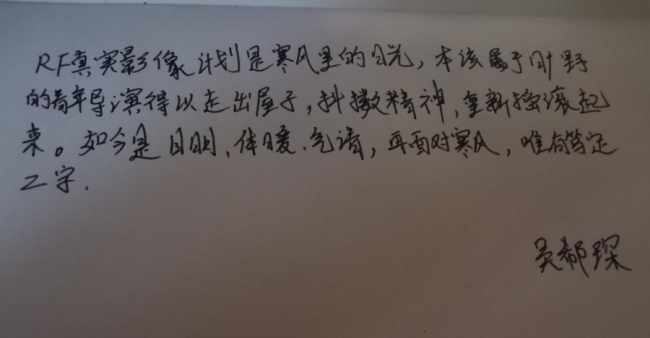 RF真实影像计划是寒风里的日光，本该属于田野
的青年导演得以走出屋子，抖擞精神，重新摇滚起
来。如今是目明、体暖、气清，再面对寒风，唯有笃定
二字.
吴郗琛